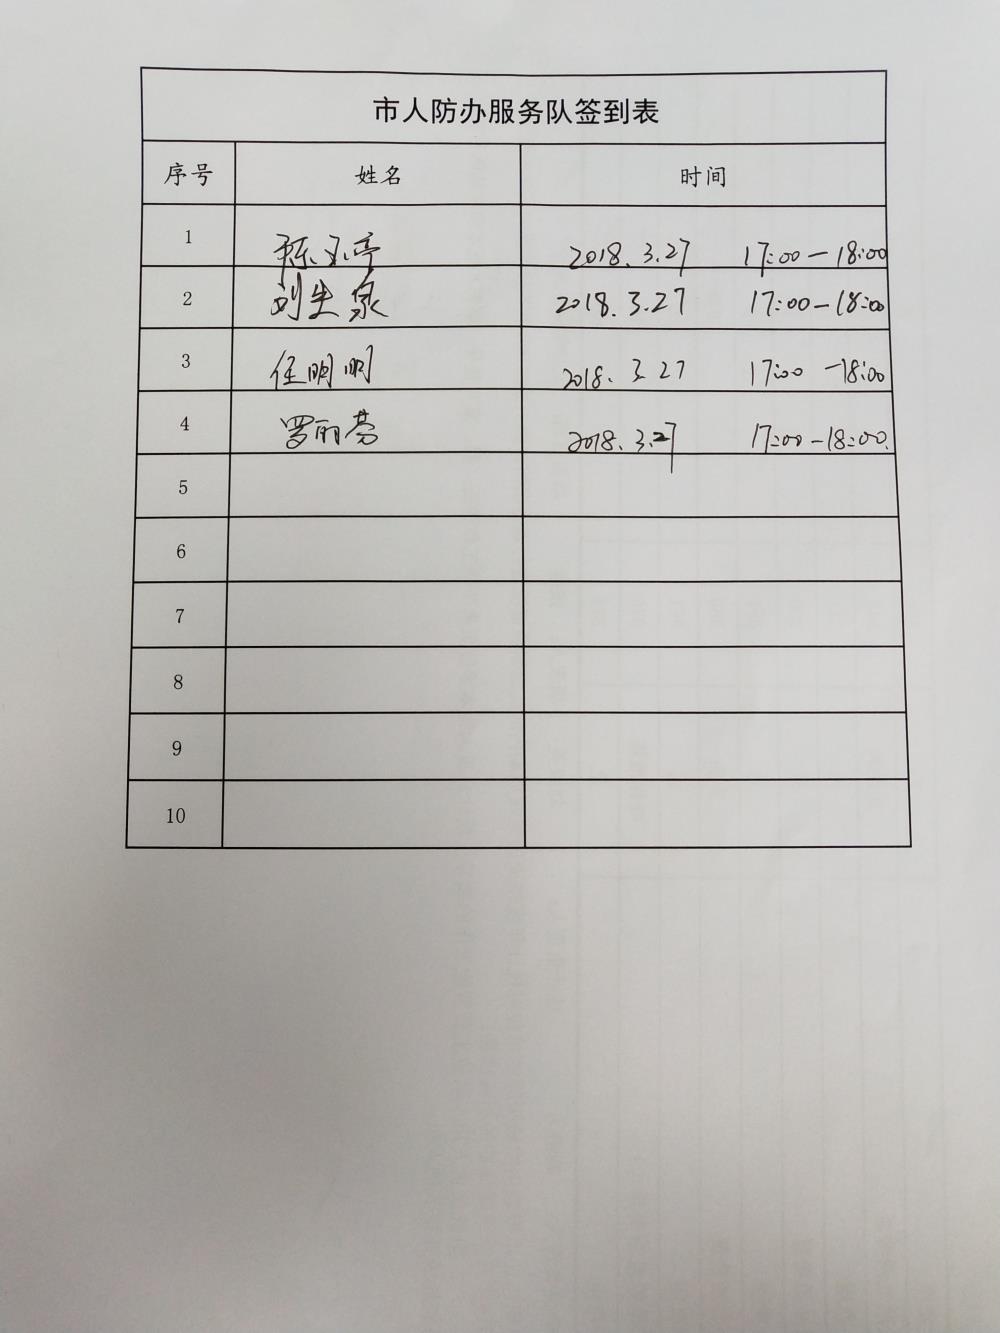 市人防办服务队签到表
序号 姓名 时间
1 陈 亭 2018.3.27 17:00-18:00
2 刘生泉 2018.3.27 17:00-18:00
3 任明明 2018.3.27 17:00-18:00
4 罗丽芬 2018.3.27 17:00-18:00.
5
6
7
8
9
10